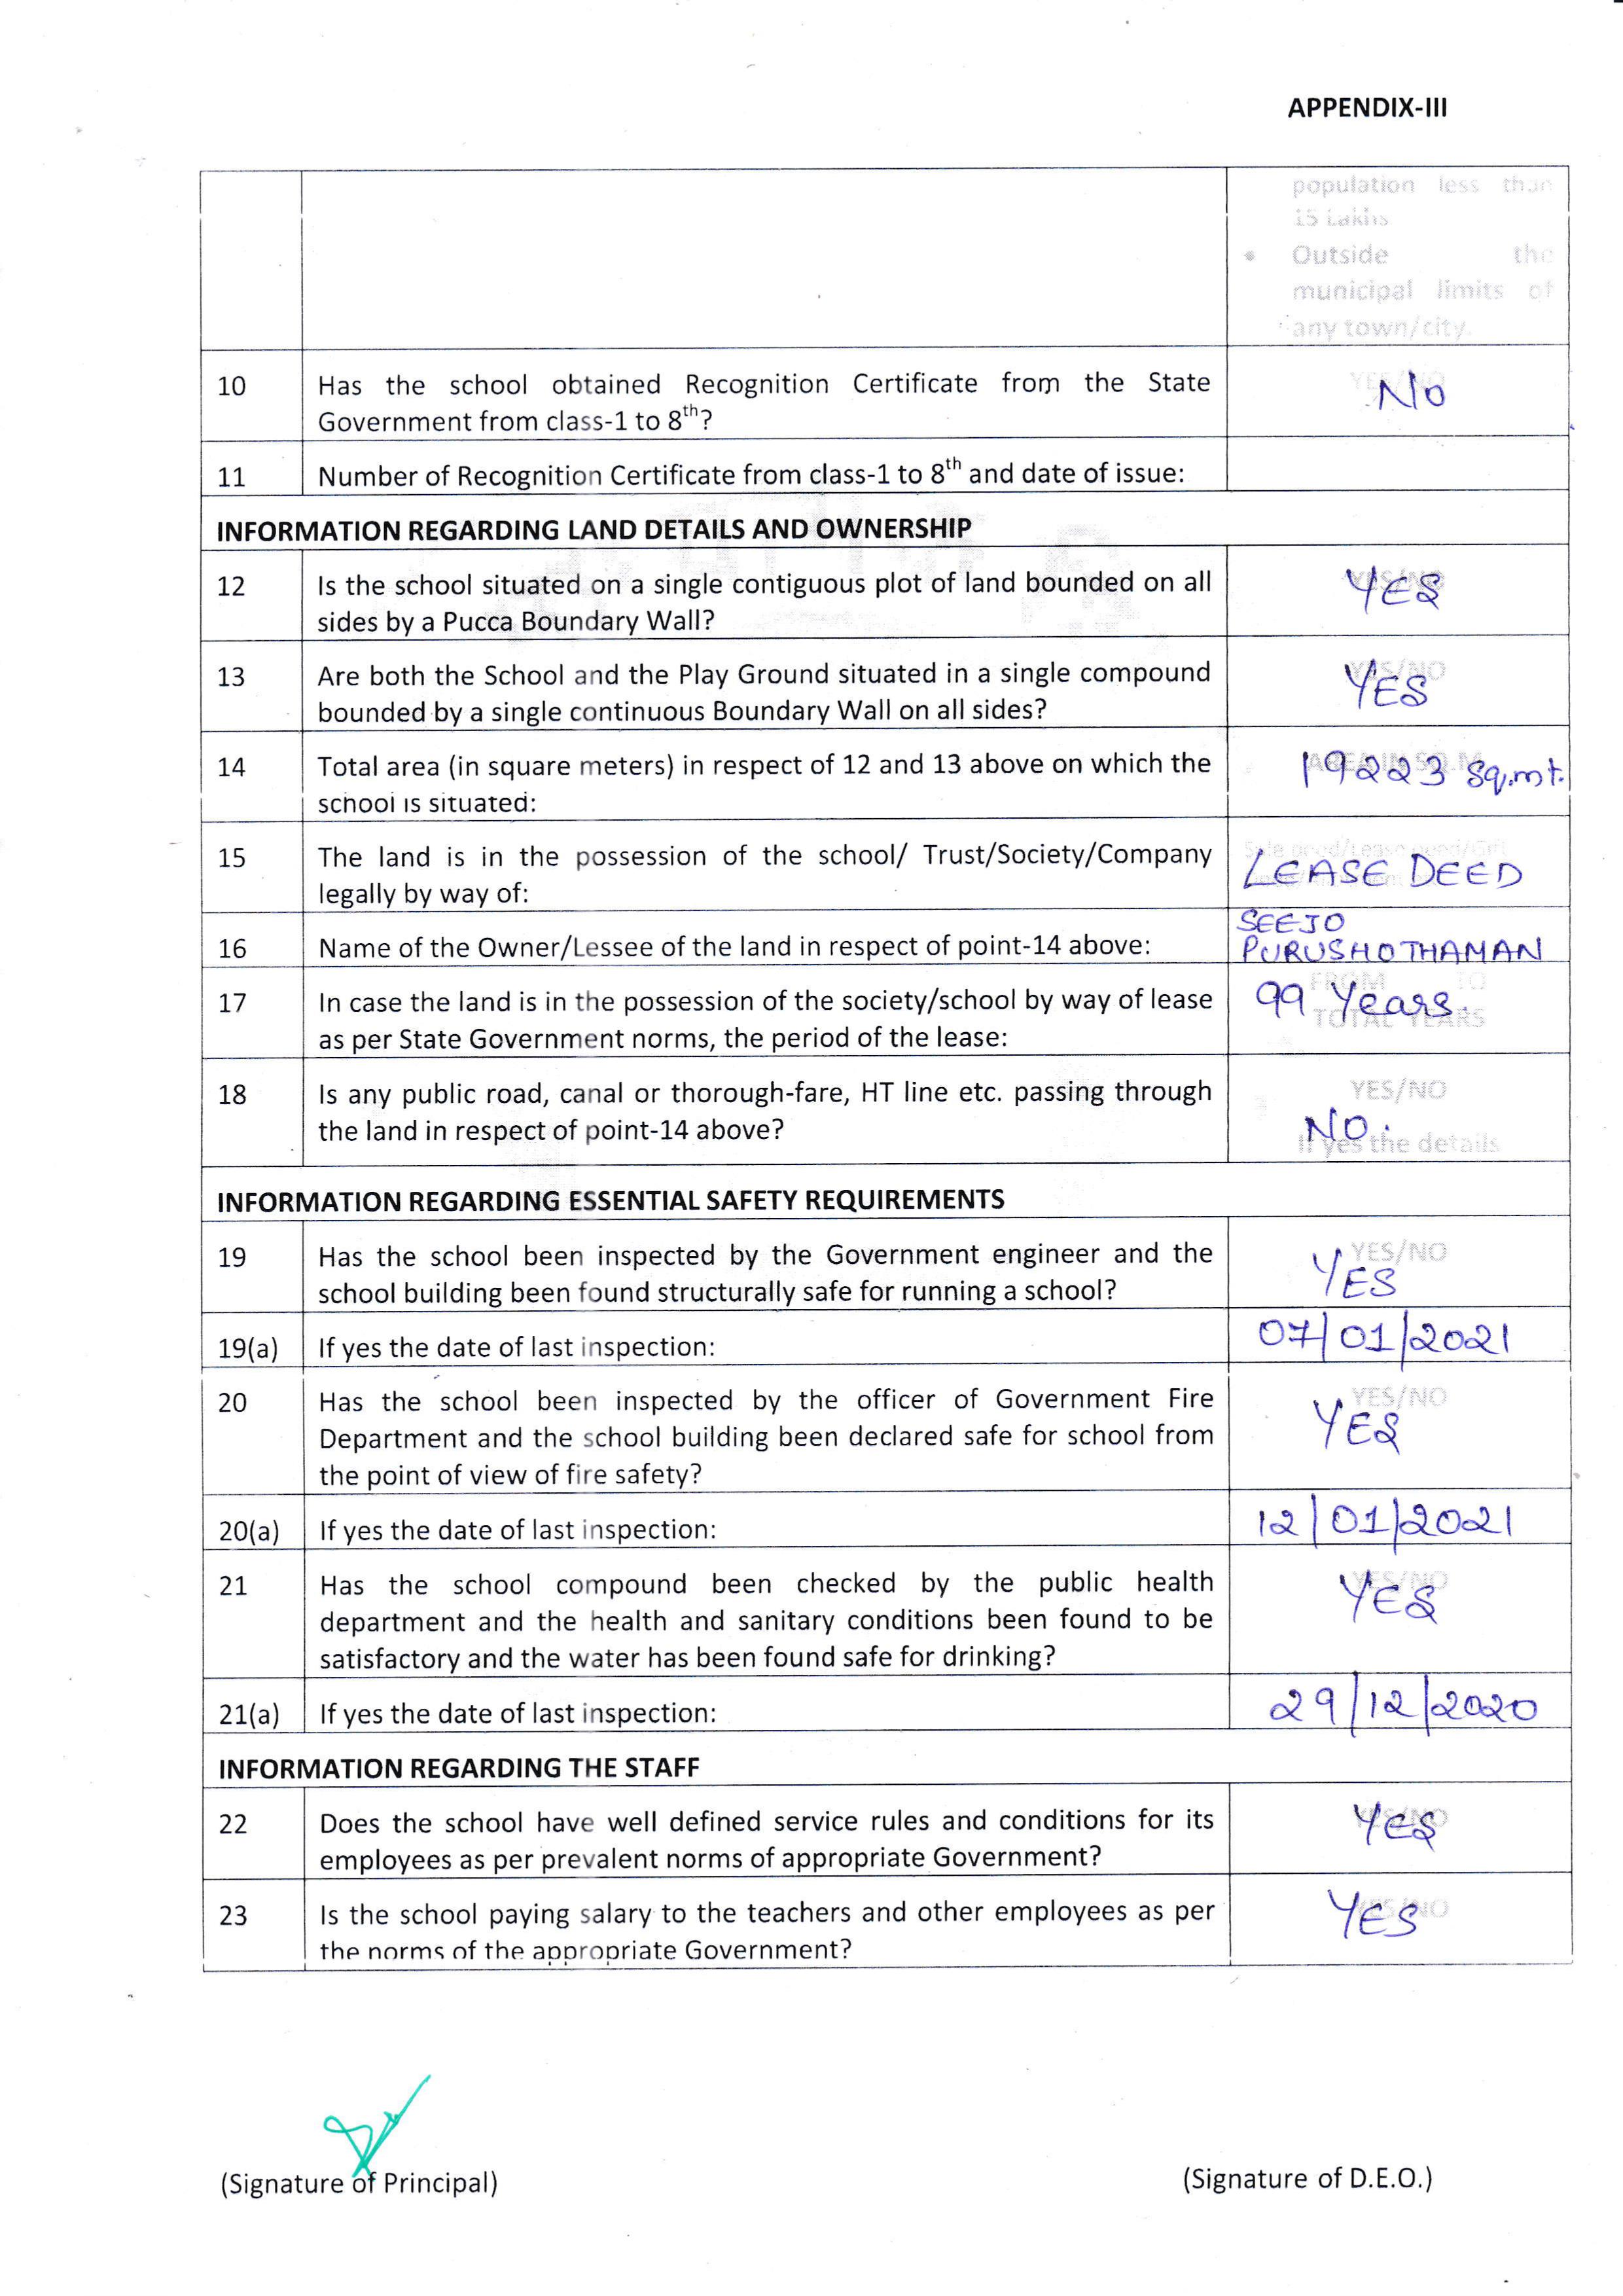 APPENDIX-III
population less than
15 Lakhs
• Outside the
municipal limits of
any town/city.
10 Has the school obtained Recognition Certificate from the State YES/NO No
Government from class-1 to 8th?
11 Number of Recognition Certificate from class-1 to 8th and date of issue:
INFORMATION REGARDING LAND DETAILS AND OWNERSHIP
12 Is the school situated on a single contiguous plot of land bounded on all YES/NO YES
sides by a Pucca Boundary Wall?
13 Are both the School and the Play Ground situated in a single compound YES/NO YES
bounded by a single continuous Boundary Wall on all sides?
14 Total area (in square meters) in respect of 12 and 13 above on which the AREA IN SQ.M 19223 Sq.mt.
school is situated:
15 The land is in the possession of the school/ Trust/Society/Company LEASE DEED
legally by way of:
SEEJO
16 Name of the Owner/Lessee of the land in respect of point-14 above: PURUSHOTHAMAN
FROM TO
17 In case the land is in the possession of the society/school by way of lease 99 Years.
TOTAL YEARS
as per State Government norms, the period of the lease:
18 Is any public road, canal or thorough-fare, HT line etc. passing through YES/NO
the land in respect of point-14 above? NO.
If yes the details
INFORMATION REGARDING ESSENTIAL SAFETY REQUIREMENTS
19 Has the school been inspected by the Government engineer and the YES/NO
school building been found structurally safe for running a school? YES
19(a) If yes the date of last inspection: 07/01/2021
20 Has the school been inspected by the officer of Government Fire YES/NO
Department and the school building been declared safe for school from YES
the point of view of fire safety?
20(a) If yes the date of last inspection: 12/01/2021
21 Has the school compound been checked by the public health YES/NO YES
department and the health and sanitary conditions been found to be
satisfactory and the water has been found safe for drinking?
21(a) If yes the date of last inspection: 29/12/2020
INFORMATION REGARDING THE STAFF
22 Does the school have well defined service rules and conditions for its YES/NO YES
employees as per prevalent norms of appropriate Government?
23 Is the school paying salary to the teachers and other employees as per YES/NO YES
the norms of the appropriate Government?
(Signature of Principal) (Signature of D.E.O.)